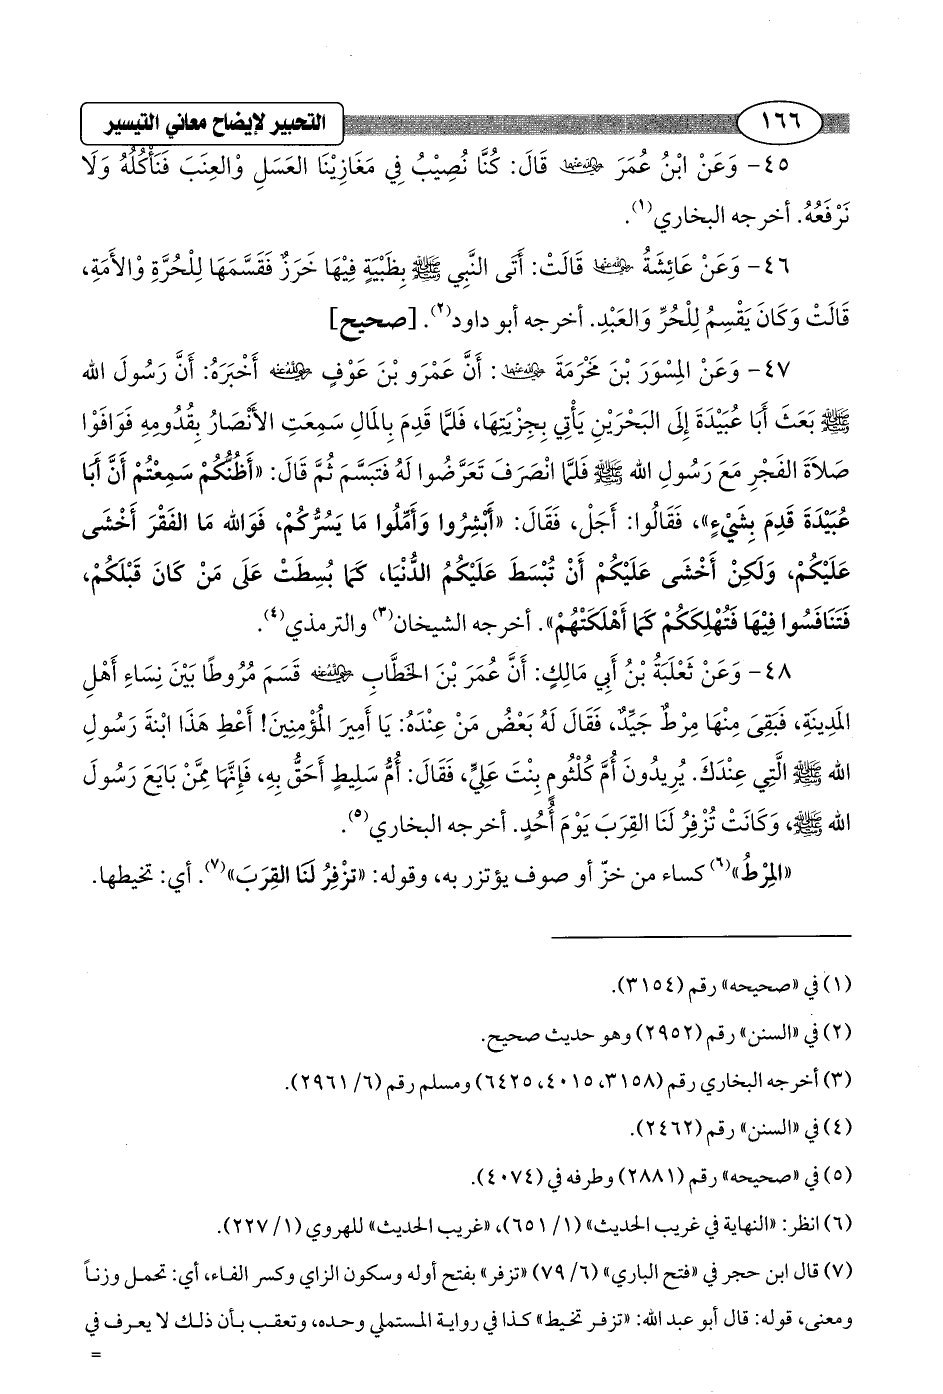 ١٦٦ التحبير لإيضاح معاني التيسير
٤٥- وَعَنْ ابْنُ عُمَرَ رضي الله عنهما قَالَ: كُنَّا نُصِيْبُ فِي مَغَازِيْنَا العَسَلَ وْالعِنَبَ فَنَأْكُلُهُ وَلَا
نَرْفَعُهُ. أخرجه البخاري(١).
٤٦- وَعَنْ عَائِشَةُ رضي الله عنها قَالَتْ: أَتَى النَّبِي ﷺ بِظَبْيَةٍ فِيْهَا خَرَزٌ فَقَسَّمَهَا لِلْحُرَّةِ وْالأَمَةِ،
قَالَتْ وَكَانَ يَقْسِمُ لِلْحُرِّ وَالعَبْدِ. أخرجه أبو داود(٢). [صحيح]
٤٧- وَعَنْ المِسْوَرَ بْنَ مَخْرَمَةَ رضي الله عنهما: أَنَّ عَمْرَو بْنَ عَوْفٍ رضي الله عنه أَخْبَرَهُ: أَنَّ رَسُولَ الله
ﷺ بَعَثَ أَبَا عُبَيْدَةَ إِلَى البَحْرَيْنِ يَأْتِي بِجِزْيَتِهَا، فَلَمَّا قَدِمَ بِالمَالِ سَمِعَتِ الأَنْصَارُ بِقُدُومِهِ فَوَافَوْا
صَلاَةَ الفَجْرِ مَعَ رَسُولِ الله ﷺ فَلَمَّا انْصَرَفَ تَعَرَّضُوا لَهُ فَتَبَسَّمَ ثُمَّ قَالَ: «أَظُنُّكُمْ سَمِعْتُمْ أَنَّ أَبَا
عُبَيْدَةَ قَدِمَ بِشَيْءٍ»، فَقَالُوا: أَجَلْ، فَقَالَ: «أَبْشِرُوا وَأَمِّلُوا مَا يَسُرُّكُمْ، فَوَالله مَا الفَقْرَ أَخْشَى
عَلَيْكُمْ، وَلَكِنْ أَخْشَى عَلَيْكُمْ أَنْ تُبْسَطَ عَلَيْكُمُ الدُّنْيَا، كَمَا بُسِطَتْ عَلَى مَنْ كَانَ قَبْلَكُمْ،
فَتَنَافَسُوا فِيْهَا فَتُهْلِكَكُمْ كَمَا أَهْلَكَتْهُمْ». أخرجه الشيخان(٣) والترمذي(٤).
٤٨- وَعَنْ ثَعْلَبَةُ بْنُ أَبِي مَالِكٍ: أَنَّ عُمَرَ بْنَ الخَطَّابِ رضي الله عنه قَسَمَ مُرُوطًا بَيْنَ نِسَاءِ أَهْلِ
المَدِينَةِ، فَبَقِيَ مِنْهَا مِرْطٌ جَيِّدٌ، فَقَالَ لَهُ بَعْضُ مَنْ عِنْدَهُ: يَا أَمِيرَ المُؤْمِنِينَ! أَعْطِ هَذَا ابْنَةَ رَسُولِ
الله ﷺ الَّتِي عِنْدَكَ. يُرِيدُونَ أُمَّ كُلْثُومٍ بِنْتَ عَلِيٍّ، فَقَالَ: أُمُّ سَلِيطٍ أَحَقُّ بِهِ، فَإِنَّهَا مِمَّنْ بَايَعَ رَسُولَ
الله ﷺ، وَكَانَتْ تُزْفِرُ لَنَا القِرَبَ يَوْمَ أُحُدٍ. أخرجه البخاري(٥).
«المِرْطُ»(٦) كساء من خزّ أو صوف يؤتزر به، وقوله: «تزْفِرُ لَنَا القِرَبَ»(٧). أي: تخيطها.
(١) في «صحيحه» رقم (٣١٥٤).
(٢) في «السنن» رقم (٢٩٥٢) وهو حديث صحيح.
(٣) أخرجه البخاري رقم (٣١٥٨، ٤٠١٥، ٦٤٢٥) ومسلم رقم (٦/ ٢٩٦١).
(٤) في «السنن» رقم (٢٤٦٢).
(٥) في «صحيحه» رقم (٢٨٨١) وطرفه في (٤٠٧٤).
(٦) انظر: «النهاية في غريب الحديث» (١/ ٦٥١)، «غريب الحديث» للهروي (١/ ٢٢٧).
(٧) قال ابن حجر في «فتح الباري» (٦/ ٧٩) «تزفر» بفتح أوله وسكون الزاي وكسر الفاء، أي: تحمل وزناً
ومعنى، قوله: قال أبو عبد الله: «تزفر تخيط» كذا في رواية المستملي وحده، وتعقب بأن ذلك لا يعرف في
=